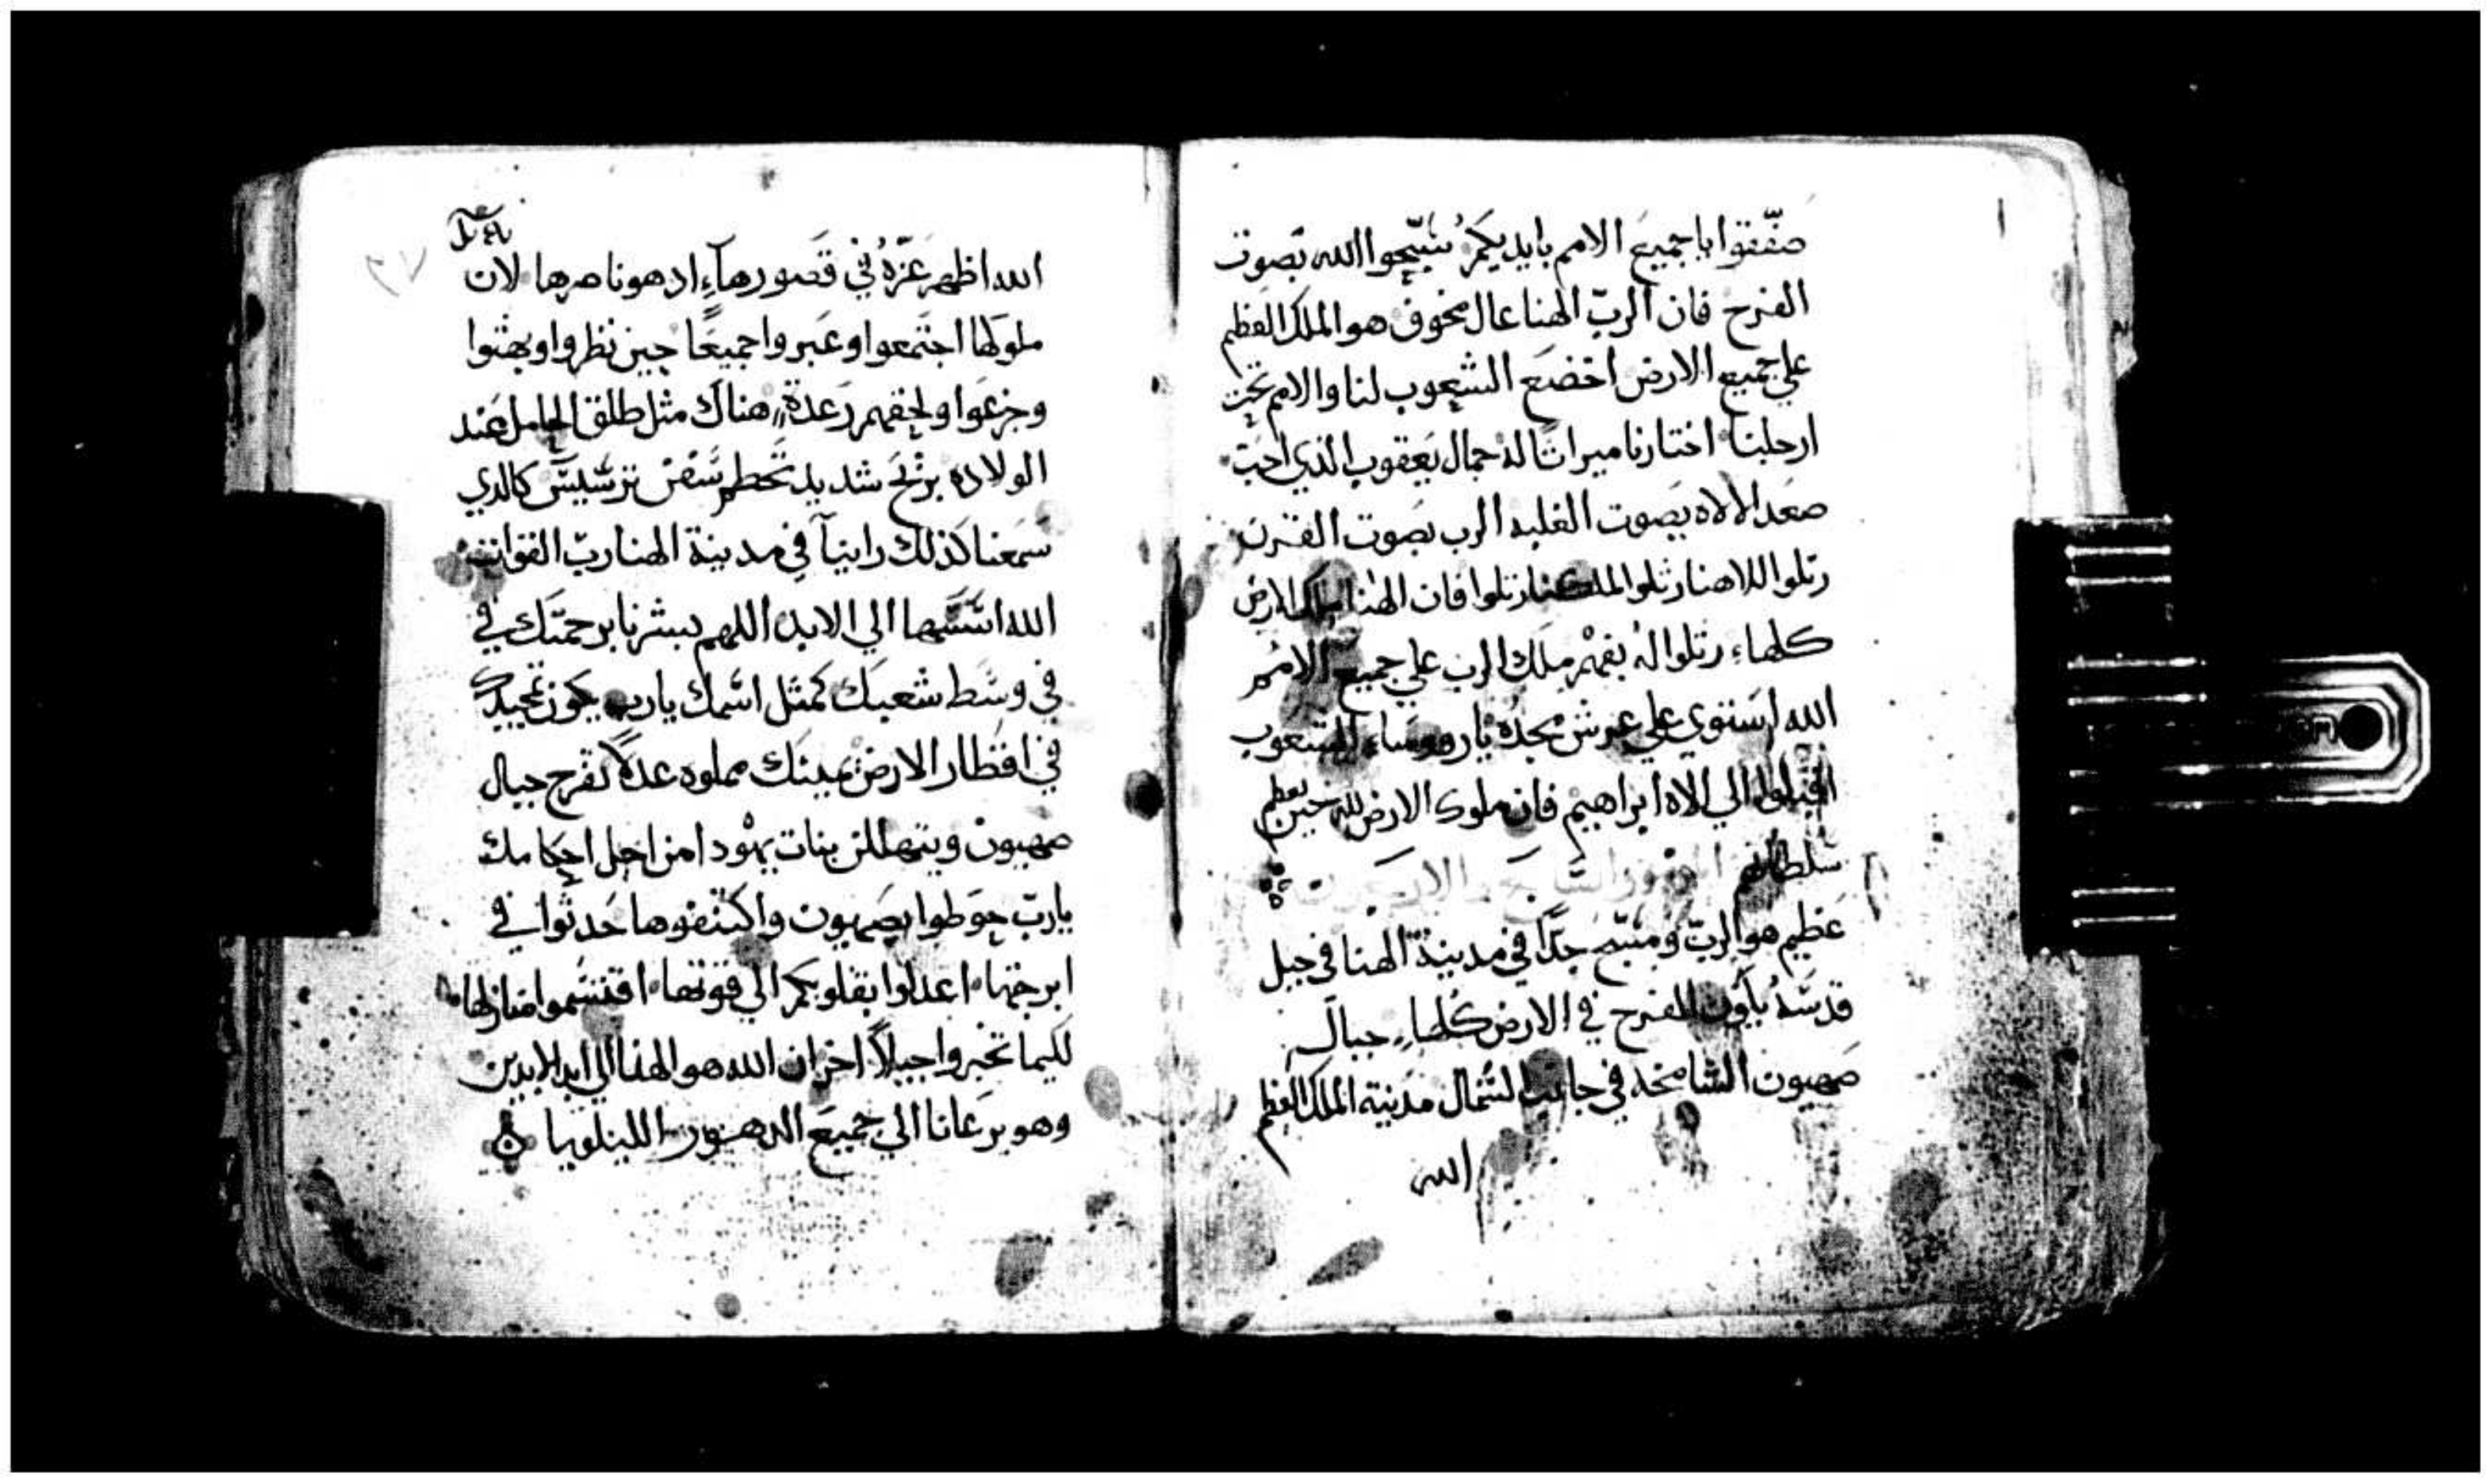 صفّقوا يا جميع الامم بايديكم سَبّحوا الله بصوت
الفرح فان الربّ الهنا عال مخوف هو الملك العظيم
علي جميع الارض اخضع الشعوب لنا والامم تحت
ارجلنا اختارنا ميراثًا له جمال يعقوب الذي احبّ
صعد الالاه بصوت الغلبه الرب بصوت القرن
رتلوا للاهنا رتلوا لملكنا رتلوا فان الهنا ملك الارض
كلها رتلوا له بفهم ملك الرب علي جميع الامم
الله استوي علي عرش مجده يا روساء الشعوب
اقبلوا الي الاه ابراهيم فان ملوك الارض لله حين يعظم
سلطانهم المزمور السابع والاربعون
عظيم هو الربّ ومسبّح جدًّا في مدينة الهنا في جبل
قدسه الفرح في الارض كلها جبال
صهيون الشامخه في جانب الشمال مدينة الملك العظيم
الله
الله اظهر عزّه في قصورها اد هو ناصرها لان
ملوكها اجتمعوا وعبروا جميعًا حين نظروا وبهتوا
وجزعوا ولحقهم رعدة هناك مثل طلق الحامل عند
الولاده بريح شديد تحطم سفن ترسيس كالدي
سمعنا كذلك راينا في مدينة الهنا ربّ القوات
الله اسّسها الي الابد اللهم بشرنا برحمتك في
في وسط شعبك كمثل اسمك يارب يكون تمجيدك
في اقطار الارض يمينك مملوه عدلًا تفرح جبال
صهيون ويتهللن بنات يهودا من اجل احكامك
ياربّ حوطوا بصهيون واكتنفوها حدثوا في
ابرجتها اعدلوا بقلوبكم الي قوتها اقتسموا منازلها
لكيما تخبروا جيلًا اخر ان الله هو الهنا الي ابد الابدين
وهو يرعانا الي جميع الدهور الليلويا